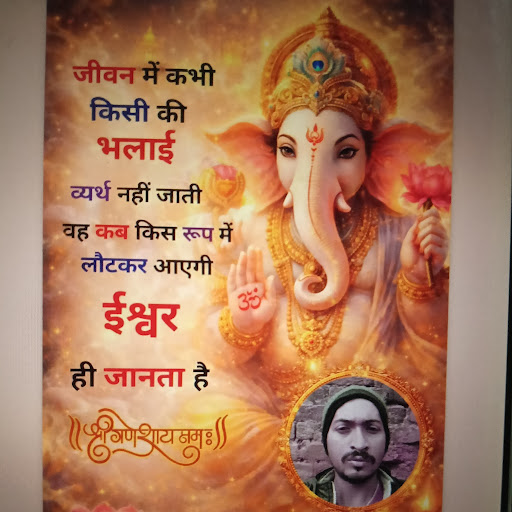 जीवन में कभी
किसी की
भलाई
व्यर्थ नहीं जाती
वह कब किस रूप में
लौटकर आएगी
ईश्वर
ही जानता है
॥ श्री गणेशाय नमः ॥
ॐ